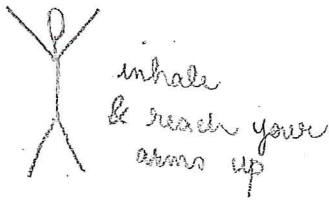 inhale
& reach your
arms up